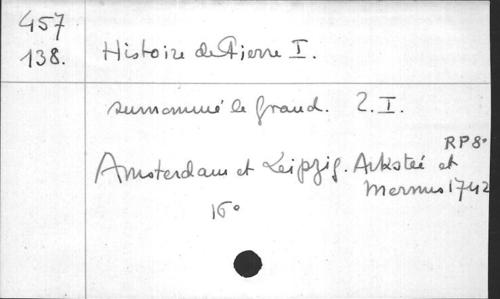 457
138. Histoire de Pierre I.
surnommé le Grand. 2. I.
RP 8°
Amsterdam et Leipzig. Arkstée et
Mermus 1742
16°